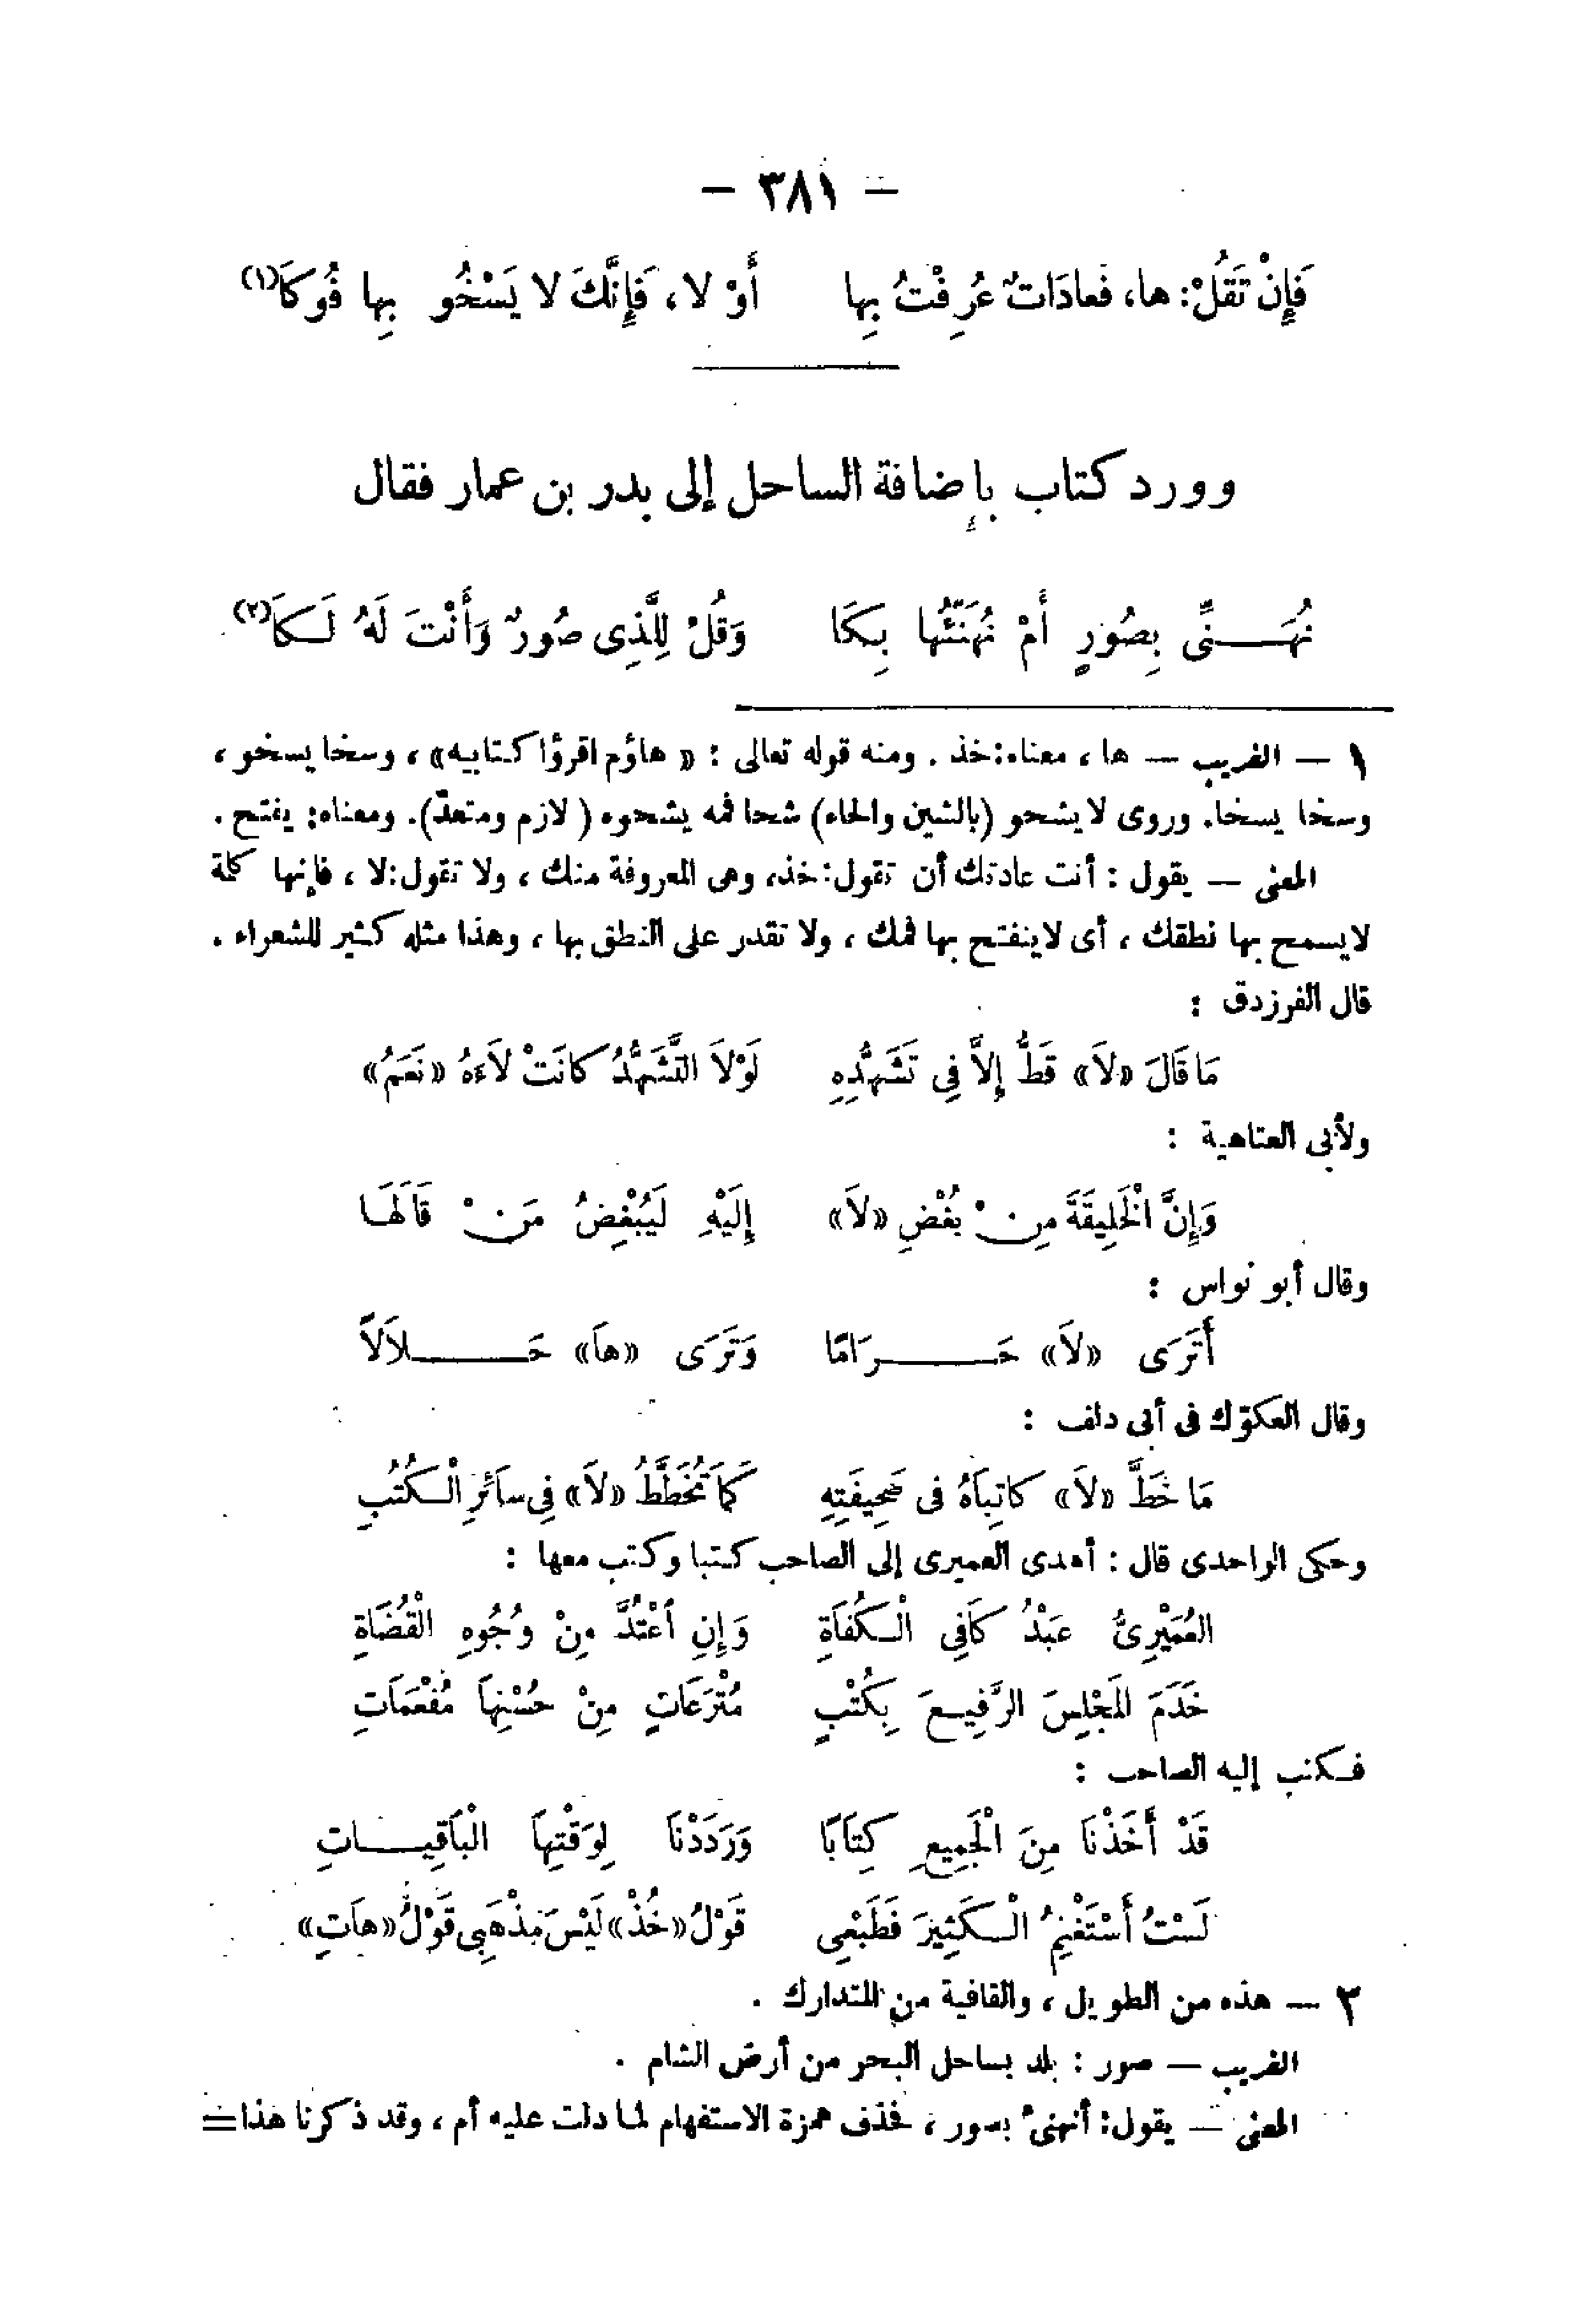 – ٣٨١ –
فَإِنْ تَقُلْ: ها، فَعادَاتٌ عُرِفْتُ بِها أَوْ لا، فَإِنَّكَ لا يَسْخُو بِها فُوكَا(١)
وورد كتاب بإضافة الساحل إلى بدر بن عمار فقال
نُهَــنِّى بِصُورٍ أَمْ نُهَنِّئُها بِكَا وَقُلْ لِلَّذِى صُورٌ وَأَنْتَ لَهُ لَـكَا(٢)
١ – الغريب – ها، معناه: خذ. ومنه قوله تعالى : « هاؤم اقرؤا كتابيه» ، وسخا يسخو ،
وسخا يسخا. وروى لايشحو (بالشين والحاء) شحا فمه يشحوه ( لازم ومتعدّ). ومعناه: يفتح .
المعنى – يقول : أنت عادتك أن تقول: خذ، وهى المعروفة منك ، ولا تقول: لا ، فإنها كلمة
لايسمح بها نطقك ، أى لاينفتح بها فمك ، ولا تقدر على النطق بها ، وهذا مثله كثير للشعراء .
قال الفرزدق :
مَا قَالَ «لاَ» قَطُّ إِلاَّ فِى تَشَهُّدِهِ لَوْلاَ التَّشَهُّدُ كانَتْ لاَءَهُ «نَعَمُ»
ولأبى العتاهية :
وَإِنَّ الْخَلِيفَةَ مِنْ بُغْضِ «لاَ» إِلَيْهِ لَيُبْغِضُ مَنْ قَالَهَا
وقال أبو نواس :
أَتَرَى «لاَ» حَــرَامًا وَتَرَى «هاَ» حَــلاَلاً
وقال العكوّك فى أبى دلف :
مَا خَطَّ «لاَ» كاتِباَهُ فى صَحِيفَتِهِ كَمَا تُخَطَّطُ «لاَ» فِى سائَرِ الْـكُتُبِ
وحكى الواحدى قال : أهدى العميرى إلى الصاحب كتبا وكتب معها :
العُمَيْرِىُّ عَبْدُ كَافِى الْـكُفَاةِ وَإِنِ اُعْتُدَّ مِنْ وُجُوهِ الْقُضَاةِ
خَدَمَ المَجْلِسَ الرَّفِيـعَ بِكُتْبٍ مُتْرَعَاتٍ مِنْ حُسْنِهاَ مُفْعَمَاتِ
فـكتب إليه الصاحب :
قَدْ أَخَذْنَا مِنَ الْجَمِيعِ كِتاَبًا وَرَدَدْنَا لِوَقْتِهاَ الْبَاقِيــاتِ
لَسْتُ أَسْتَغْنِمُ الْـكَثِيرَ فَطَبْعِى قَوْلُ «خُذْ» لَيْسَ مَذْهَبِى قَوْلُ «هَاتِ»
٢ – هذه من الطويل ، والقافية من المتدارك .
الغريب – صور : بلد بساحل البحر من أرض الشام .
المعنى – يقول: أنهنئ بصور ، فحذف همزة الاستفهام لما دلت عليه أم ، وقد ذكرنا هذا =